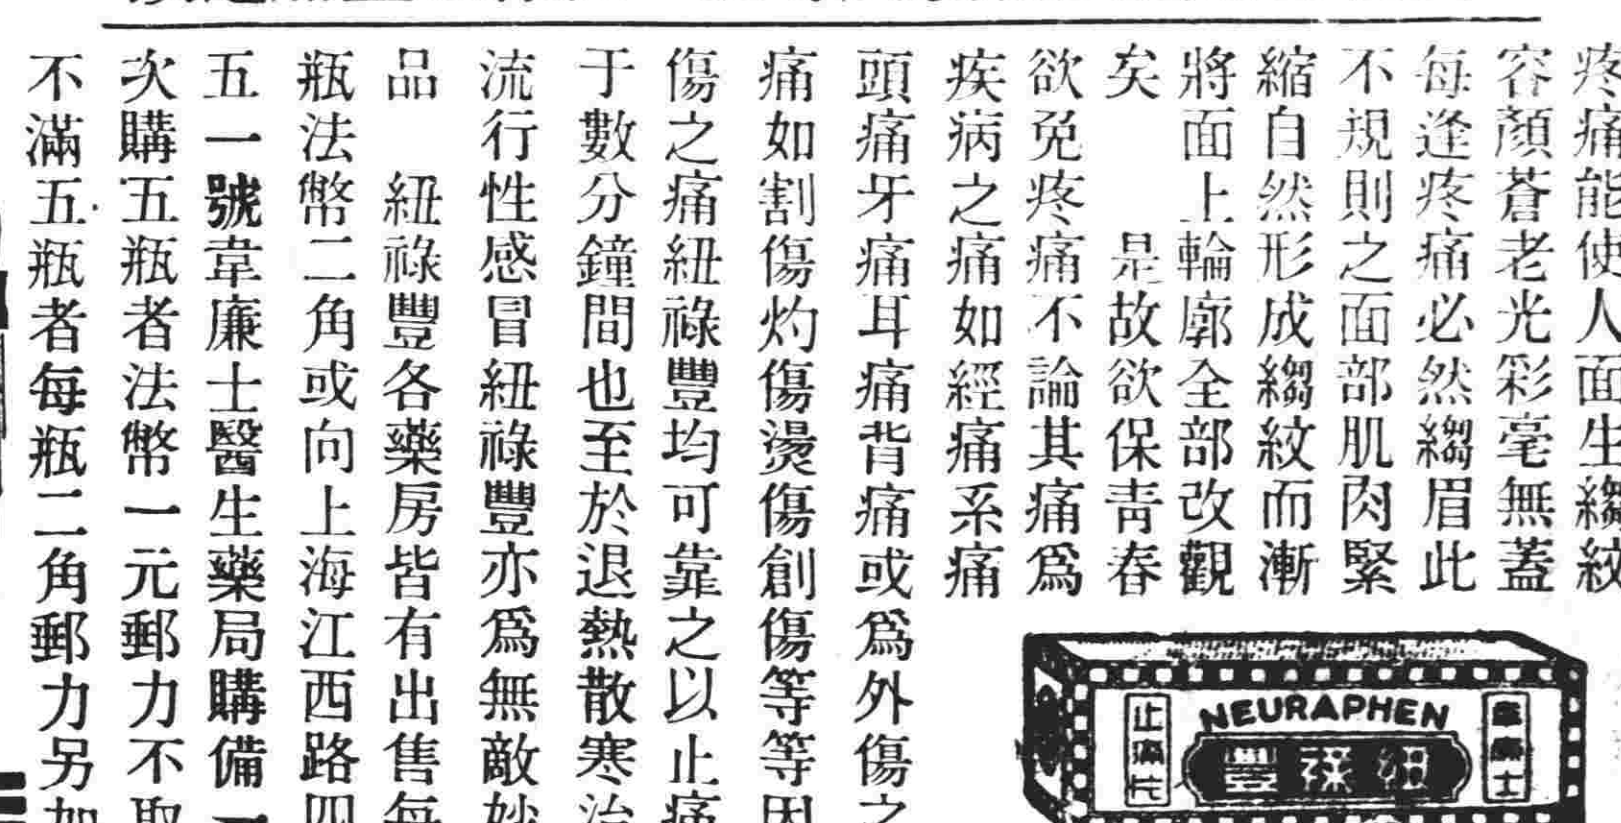 疼痛能使人面生縐紋
容顏蒼老光彩毫無蓋
每逢疼痛必然縐眉此
不規則之面部肌肉緊
縮自然形成縐紋而漸
將面上輪廓全部改觀
矣　是故欲保青春
欲免疼痛不論其痛爲
疾病之痛如經痛系痛
頭痛牙痛耳痛背痛或爲外傷之
痛如割傷灼傷燙傷創傷等等因
傷之痛紐祿豐均可靠之以止痛
于數分鐘間也至於退熱散寒治
流行性感冒紐祿豐亦爲無敵妙
品　紐祿豐各藥房皆有出售每
瓶法幣二角或向上海江西路四
五一號韋廉士醫生藥局購備一
次購五瓶者法幣一元郵力不取
不滿五瓶者每瓶二角郵力另加
NEURAPHEN
韋廉士
紐祿豐
止痛片